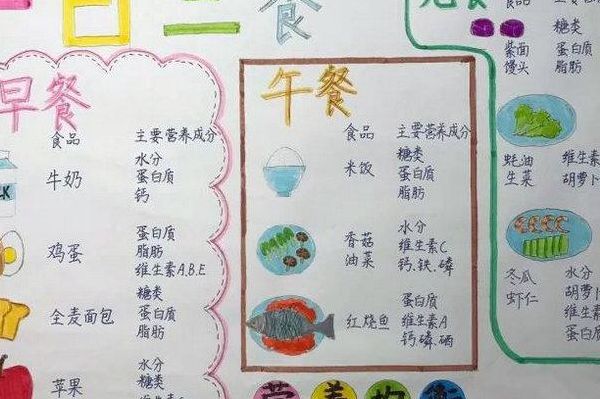 一日三餐
早餐
食品 主要营养成分
牛奶
水分
蛋白质
钙
鸡蛋
蛋白质
脂肪
维生素A.B.E
全麦面包
糖类
蛋白质
脂肪
苹果
水分
糖类
午餐
食品 主要营养成分
米饭
糖类
蛋白质
脂肪
香菇
油菜
水分
维生素C
钙.铁.磷
红烧鱼
蛋白质
维生素A
钙.磷.硒
食品
紫面
馒头
糖类
蛋白质
脂肪
蚝油
生菜
维生素
胡萝卜
冬瓜
虾仁
水分
胡萝卜
维生素
蛋白质
营养均衡